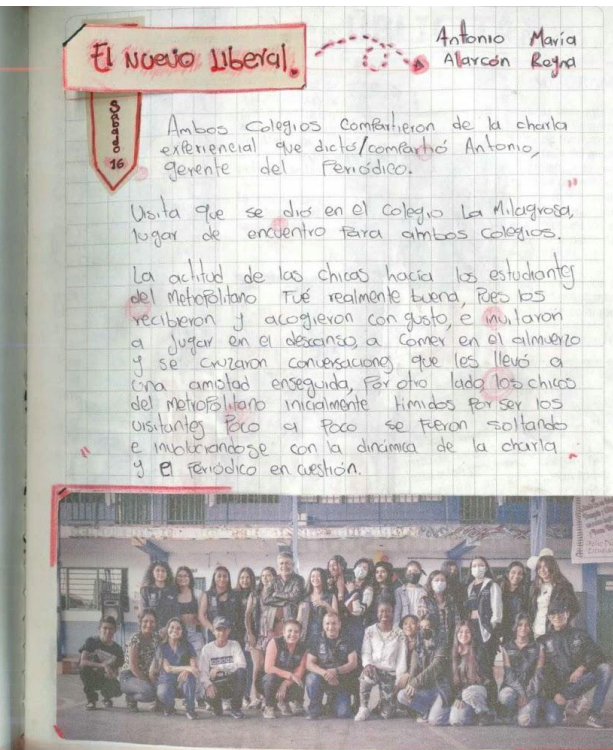 El Nuevo Liberal.
Antonio María
Alarcón Reyna
Sábado
16
Ambos Colegios Compartieron de la charla
experiencial que dictó/compartió Antonio,
gerente del Periódico.
Visita que se dió en el Colegio La Milagrosa,
lugar de encuentro para ambos colegios.
La actitud de las chicas hacia los estudiantes
del Metropolitano Fué realmente buena, Pues los
recibieron y acogieron con gusto, e invitaron
a jugar en el descanso, a comer en el almuerzo
y se cruzaron conversaciones que les llevó a
una amistad enseguida, Por otro lado, los chicos
del metropolitano inicialmente timidos por ser los
visitantes Poco a Poco se fueron soltando
e involucrandose con la dinámica de la charla
y el Periódico en cuestión.